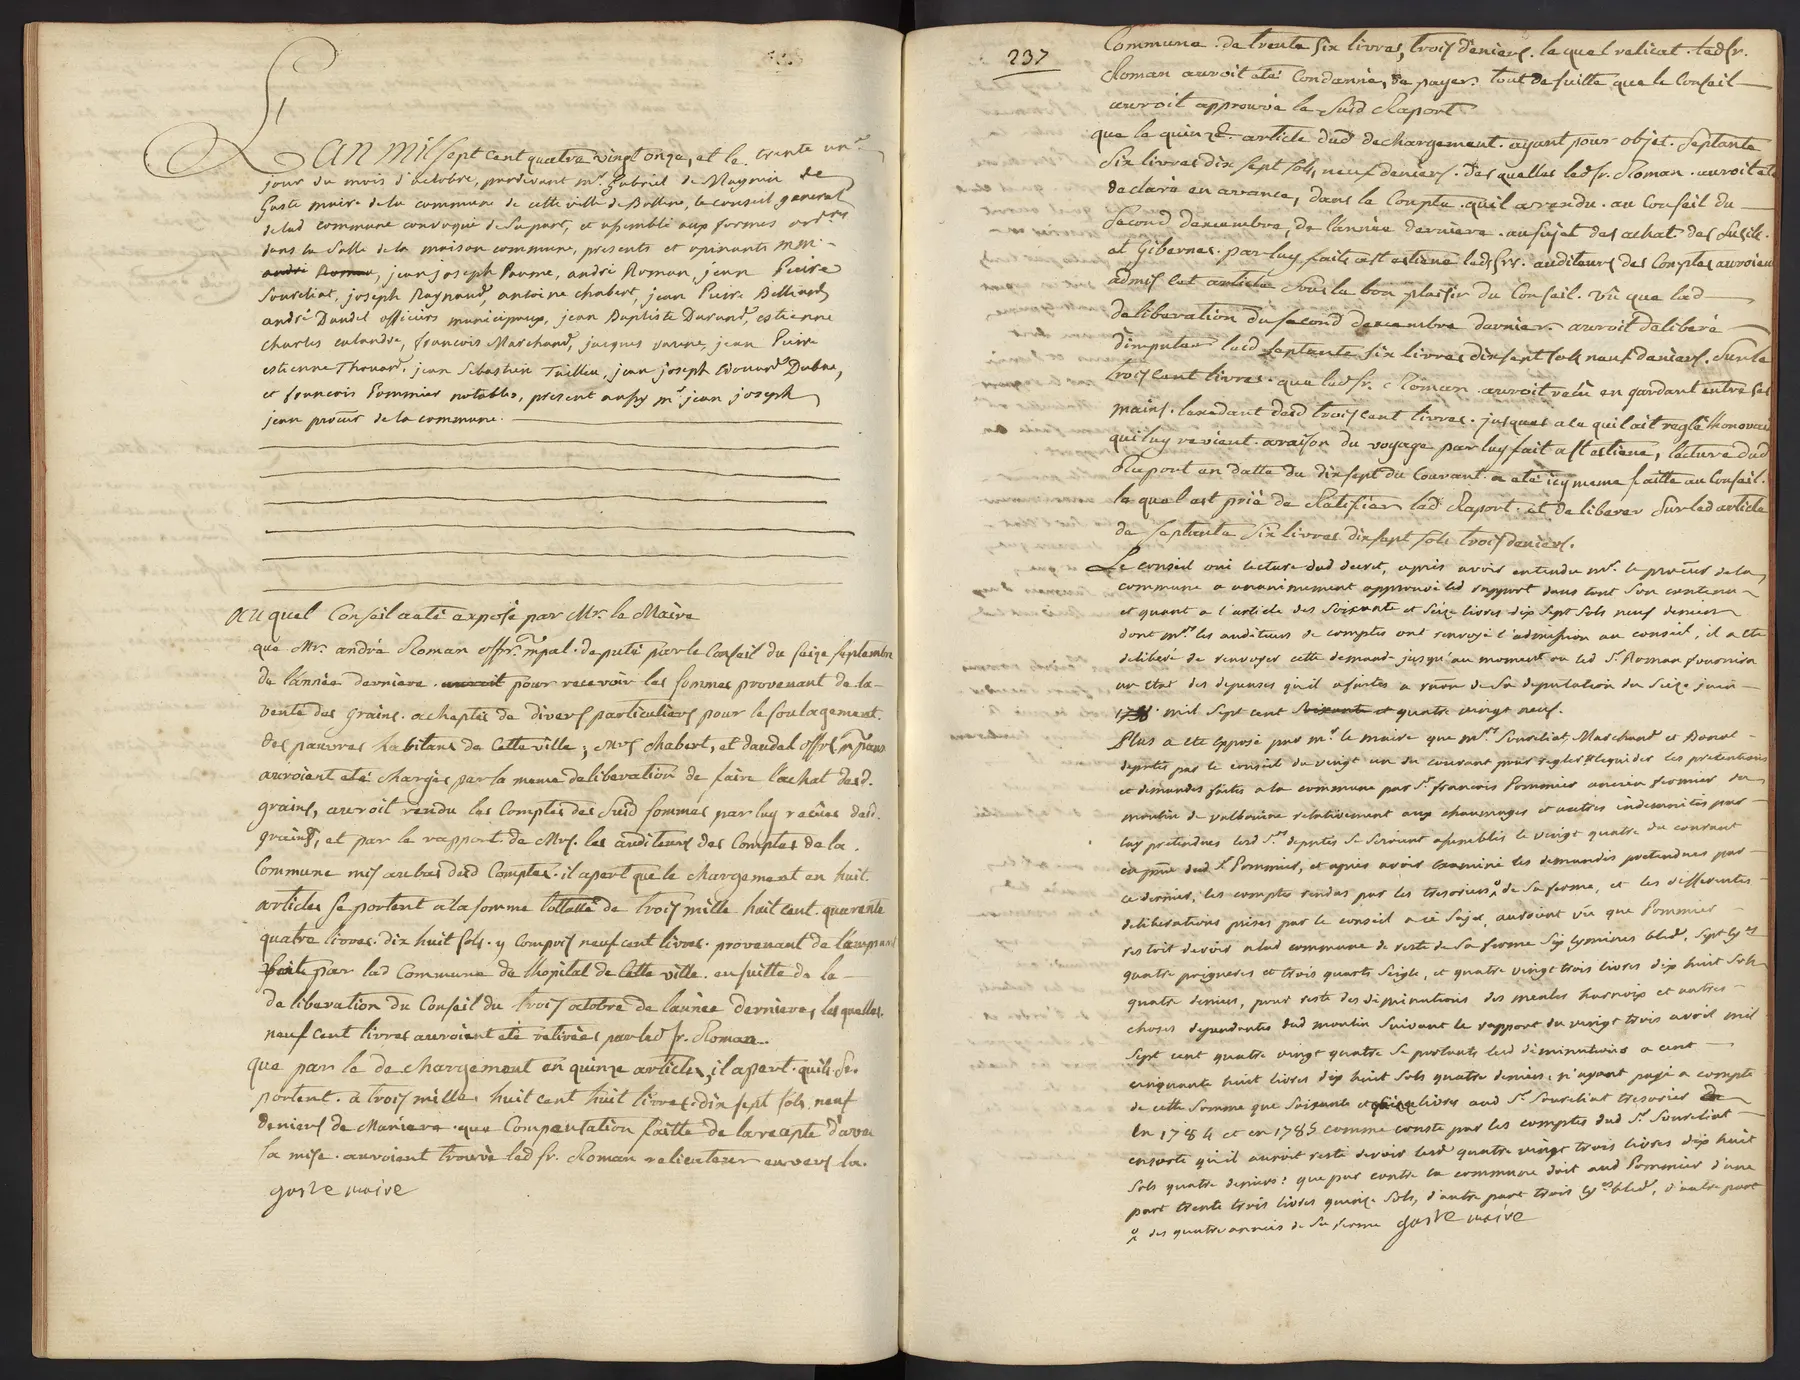 L'an mil sept cent quatre vingt onze, et le trente un.e
jour du mois d'octobre, pardevant mr. Gabriel de Raymin de
Gaste maire de la commune de cette ville de Bollene, le conseil general
de lad commune convoqué de sa part, et assemblé aux formes ordres
dans la salle de la maison commune, presents et opinants mm.
andré Roman, jean joseph Paume, andré Roman, jean Pierre
Soureliat, joseph Raynaud, antoine chabert, jean Pierre Belliard
andré Daudel officiers municipaux, jean Baptiste Durand, estienne
charles calandre, françois Marchand, jacques varene, jean Pierre
estienne Thouard, jean Sebastien Taillieu, jean joseph Edouard
et francois Pommier notables, present aussy mr. jean joseph
jean procur de la commune.
Auquel Conseil a eté exposé par Mr. le Maire
que Mr. andré Roman offr. mpal. deputé par le Conseil du seize septembre
de l'année derniere. auroit pour recevoir les sommes provenant de la
vente des grains. acheptés de divers particuliers pour le soulagement.
des pauvres habitans de cette ville; Mrs chabert, et daudel offrs. mpaux
auroient eté chargés par la meme deliberation de faire l'achat desd.
grains, auroit rendu les Comptes des susd sommes par luy recües desd.
grains, et par le rapport de Mrs. les auditeurs des Comptes de la.
Commune mis au bas desd Comptes. il apert que le chargement en huit.
articles se portent a la somme tottalle de trois mille huit cent. quarente
quatre livres. dix huit sols. y compris neuf cent livres. provenant de l'emprunt
fait par lad Commune de l'hopital de Cette ville. ensuitte de la
deliberation du Conseil du trois octobre de l'année derniere, les quelles.
neuf cent livres auroient eté retirées par led sr. Roman.
que par le dechargement en quinze articles, il apert. quils se.
portent. à trois mille huit cent huit livres. dix sept sols neuf
deniers de Maniere. que Compensation faitte de la recepte d'avec
la mise. auroient trouvé led sr. Roman relicateur envers la.
gaste maire
237
Commune. de trente six livres, trois deniers. le quel relicat. led sr.
Roman auroit eté Condamné, de payer. tout de suitte que le Conseil
auroit approuvé le susd Raport
que le quinze. article dud dechargement. ayant pour objet. septante
six livres dix sept sols, neuf deniers. des quelles led sr. Roman. auroit eté
declaré en avance, dans le Compte. quil a rendu. au Conseil du
second decembre, de l'année derniere. au sujet des achat. des fusils.
et gibernes. par luy faits a st estiene led srs. auditeurs des Comptes auroient
admis cet article sous le bon plaisir du Conseil. vû que lad
deliberation du second decembre dernier. auroit deliberé
d'imputer lesd septante six livres dix sept sols neuf deniers. sur le
trois cent livres. que led sr. Roman. auroit retû en gardant entre ses
mains. l'excedant desd trois cent livres. jusques a ce qu'il ait reglé l'honorai
qui luy revient. a raison du voyage par luy fait a st estiene, lecture dud
Raport en datte du dix sept du Courant. a eté icy meme faitte au Conseil.
le quel est prié de Ratifier led Raport. et deliberer sur led article
de septante six livres dix sept sols trois deniers.
Le conseil oui lecture dud decret, apres avoir entendu mr. le procur de la
commune a unanimement approuvé led rapport dans tout son contenu
et quant a l'article des soixante et seize livres dix sept sols neuf deniers
dont mrs. les auditeurs de comptes ont renvoyé l'admission au conseil, il a ete
deliberé de renvoyer cette demande jusqu'au moment ou led sr. Roman fournira
un etat des depenses qu'il a faites a raison de sa deputation du seize juin
mil sept cent soixante et quatre vingt neuf.
Plus a ete exposé par mr. le maire que mrs. Soureliat, Marchand et
deputés par le conseil du vingt un du courant pour regler et liquider les pretentions
et demandes faites a la commune par sr. francois Pommier ancien fermier du
moulin de valbonne relativement aux chaumages et autres indemnités par
luy pretendues lesd srs. deputés se seroient assemblés le vingt quatre du courant
en presence dud sr. Pommier, et apres avoir examiné les demandes pretendues par
ce dernier, les comptes rendus par les tresoriers de sa ferme, et les differentes
deliberations prises par le conseil a ce sujet, auroient vûe que Pommier
restoit devoir a lad commune de reste de sa ferme six eymines bled, sept
quatre poignieres et trois quarts seigle, et quatre vingt trois livres dix huit sols
quatre deniers, pour reste des diminutions des meules harnoix et autres
choses dependantes dud moulin suivant le rapport du vingt trois avril mil
sept cent quatre vingt quatre se portants lesd diminutions a cent
cinquante huit livres dix huit sols quatre deniers; n'ayant payé a compte
de cette somme que soixante et quinze livres aud sr. Soureliat tresorier
en 1784 et en 1785 comme conste par les comptes dud sr. Soureliat
ensorte qu'il auroit resté devoir lesd quatre vingt trois livres dix huit
sols quatre deniers; que par contre la commune doit aud Pommier d'une
part trente trois livres quinze sols, d'autre part trois bled, d'autre part
des quatre années de sa ferme gaste maire